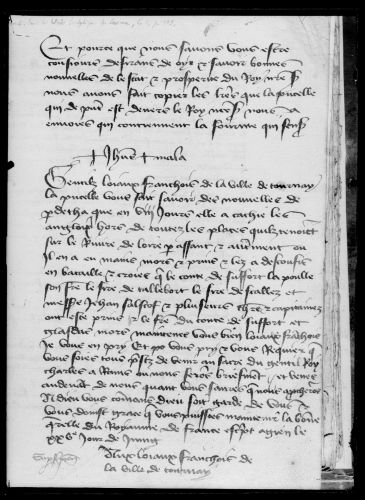 Et pource que nous savons vous estre
desirans de oyr & savoir bonnes
nouvelles de lestat & prosperite du Roy nre sr
nous avons fait copier les lres que la pucelle
qui de pnt est devers le Roy nre sr nous a
envoies qui contiennent la fourme qui senst
† Jhus † maria
Gentilz loiaux franchois de la ville de tournay
la pucelle vous fait savoir des nouvelles de
par decha que en viij jours elle a cachie les
anglois hors de toutez les places quilz tenoient
sur le Rivire de loire par assaut & aultrement ou
il en a eu mains mors & prins & lez a desconfis
en bataille & croies que le conte de suffort la poulle
son frere le sire de tallebort le sire de scallez et
messre Jehan falscof & plusieurs chlrs & capitainez
ont este prins & le frere du conte de suffort et
glasdas mors maintenes vous bien loiaux franchois
Je vous en pry Et vous pry & vous Requier que
vous soies tous prestz de venir au sacre du gentil Roy
charles a Rains ou nous serons briefment et venes
au devant de nous quant vous saures que nous aprocherons
A dieu vous comans dieu soit garde de vous &
vous doinst grace que vous puissies maintenir la bonne
querelle du Royaume de france escript a gien le
xxve Jour de Juing
Aux loiaux franchois de
la ville de tournay